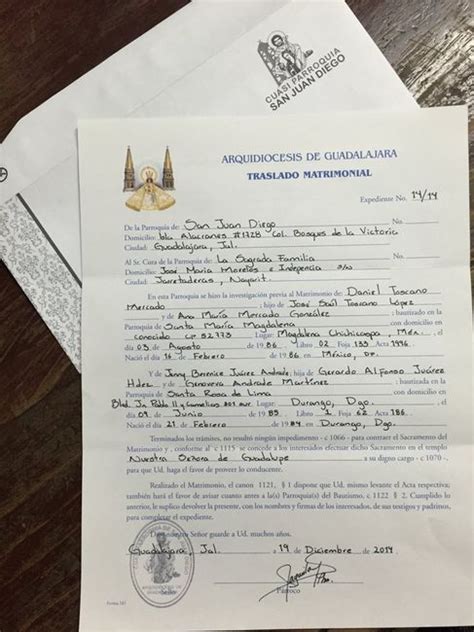 CUASI PARROQUIA
SAN JUAN DIEGO
ARQUIDIOCESIS DE GUADALAJARA
TRASLADO MATRIMONIAL
Expediente No. 14/14
De la Parroquia de: San Juan Diego No.
Domicilio: Isla Alacranes #1728 Col. Bosques de la Victoria
Ciudad: Guadalajara, Jal.
Al Sr. Cura de la Parroquia de: La Sagrada Familia
Domicilio: José María Morelos e s/n No.
Ciudad: Jarretaderas, Nayarit.
En esta Parroquia se hizo la investigación previa al Matrimonio de: Daniel Toscano
Mercado ; hijo de José Saúl Toscano López
y de Ana María Mercado González ; bautizado en la
parroquia de Santa María Magdalena con domicilio
conocido CP 52773 Lugar: Magdalena Chichicaspa, Méx. el
día 03 de Agosto de 1986 Libro 02 Foja 133 Acta 1996.
Nació el día 16 de Febrero de 1986 en México, DF.
Y de Jenny Berenice Juárez Andrade; hija de Gerardo Alfonso Juárez
Hdez y de Genoveva Andrade Martínez ; bautizada en la
Parroquia de Santa Rosa de Lima con domicilio
Lugar: Durango, Dgo. el
día 09 de Junio de 1985 Libro 1 Foja 62 Acta 186.
Nació el día 21 de Febrero de 1984 en Durango, Dgo.
Terminados los trámites, no resultó ningún impedimento - c 1066 - para contraer el Sacramento
del Matrimonio y, conforme al c 1115 se concede a los interesados efectuar dicho Sacramento en el templo
Nuestra Señora de Guadalupe a su digno cargo - c 1070 -,
para que Ud. haga el favor de proveer lo conducente.
Realizado el Matrimonio, el canon 1121, § 1 dispone que Ud. mismo levante el Acta respectiva;
también hará el favor de avisar cuanto antes a la(s) Parroquia(s) del Bautismo, c 1122 § 2. Cumplido lo
anterior, le suplico devolver la presente, con los nombres y firmas de los interesados, de sus testigos y padrinos,
para completar el expediente.
Dios nuestro Señor guarde a Ud. muchos años.
Guadalajara, Jal. a 19 Diciembre de 2014
Sello
Párroco